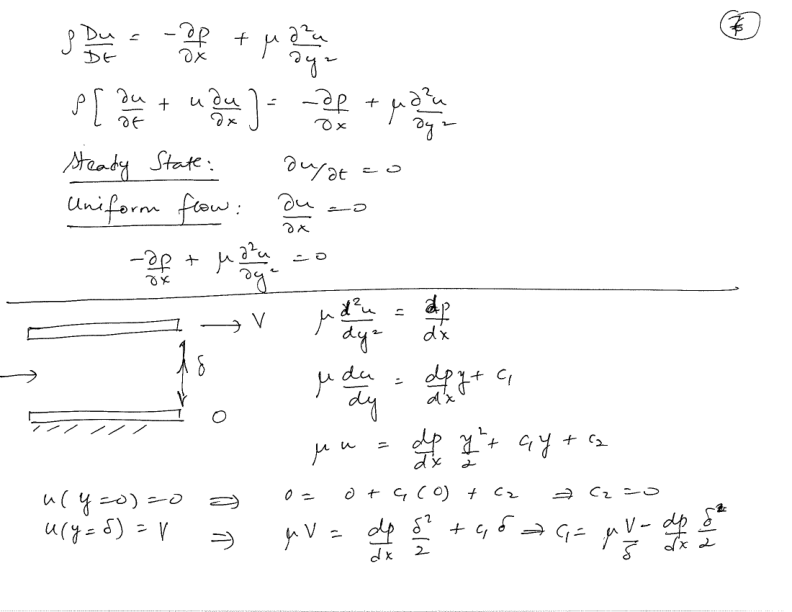 ρ Du/Dt = -∂p/∂x + μ ∂²u/∂y²
ρ[ ∂u/∂t + u ∂u/∂x ] = -∂p/∂x + μ ∂²u/∂y²
Steady State: ∂u/∂t = 0
Uniform flow: ∂u/∂x = 0
-∂p/∂x + μ ∂²u/∂y² = 0
V
δ
0
μ d²u/dy² = dp/dx
μ du/dy = dp/dx y + c₁
μ u = dp/dx y²/2 + c₁y + c₂
u(y=0)=0 ⇒ 0 = 0 + c₁(0) + c₂ ⇒ c₂ = 0
u(y=δ) = V ⇒ μV = dp/dx δ²/2 + c₁δ ⇒ c₁ = μ V/δ - dp/dx δ/2